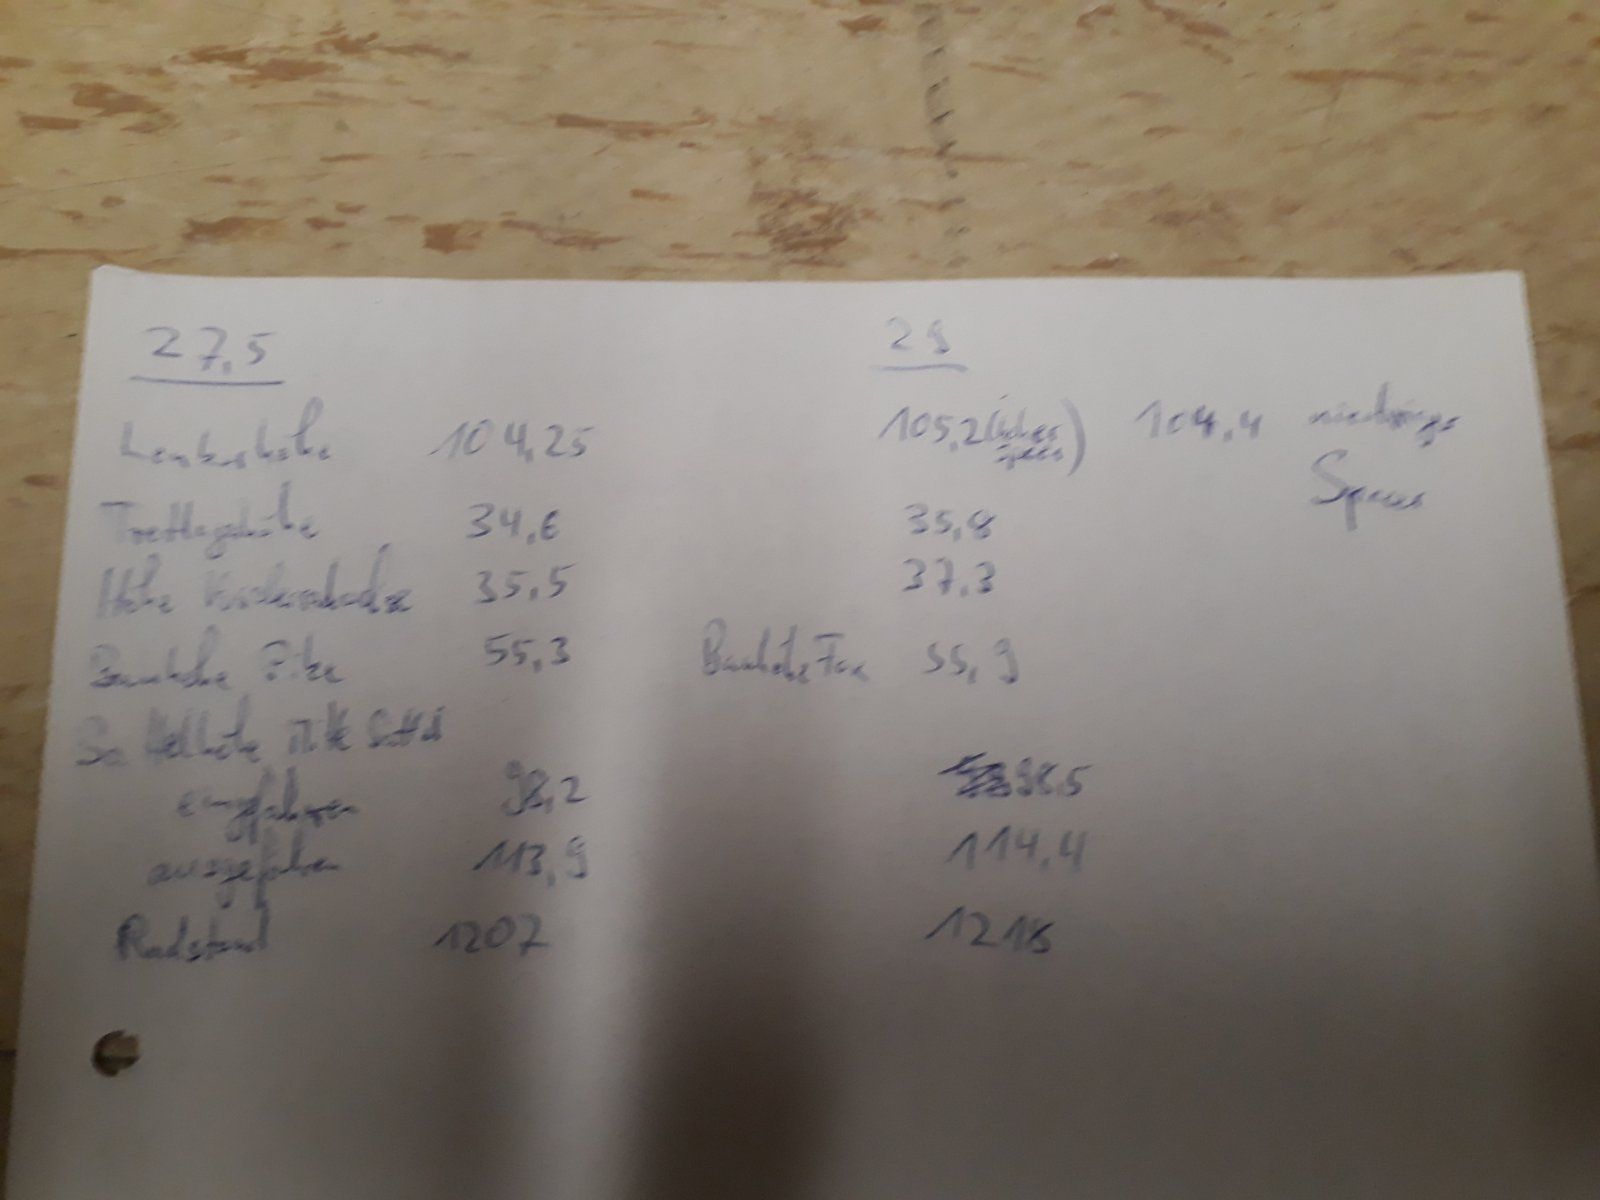 27,5 29
Lenkerhöhe 104,25 105,2 (hoher Spacer) 104,4 niedriger
Spacer
Tretlagerhöhe 34,6 35,8
Höhe Vorderachse 35,5 37,3
Bauhöhe Pike 55,3 Bauhöhe Fox 55,9
Sattelhöhe Mitte Sattel
eingefahren 98,2 98,5
ausgefahren 113,9 114,4
Radstand 1207